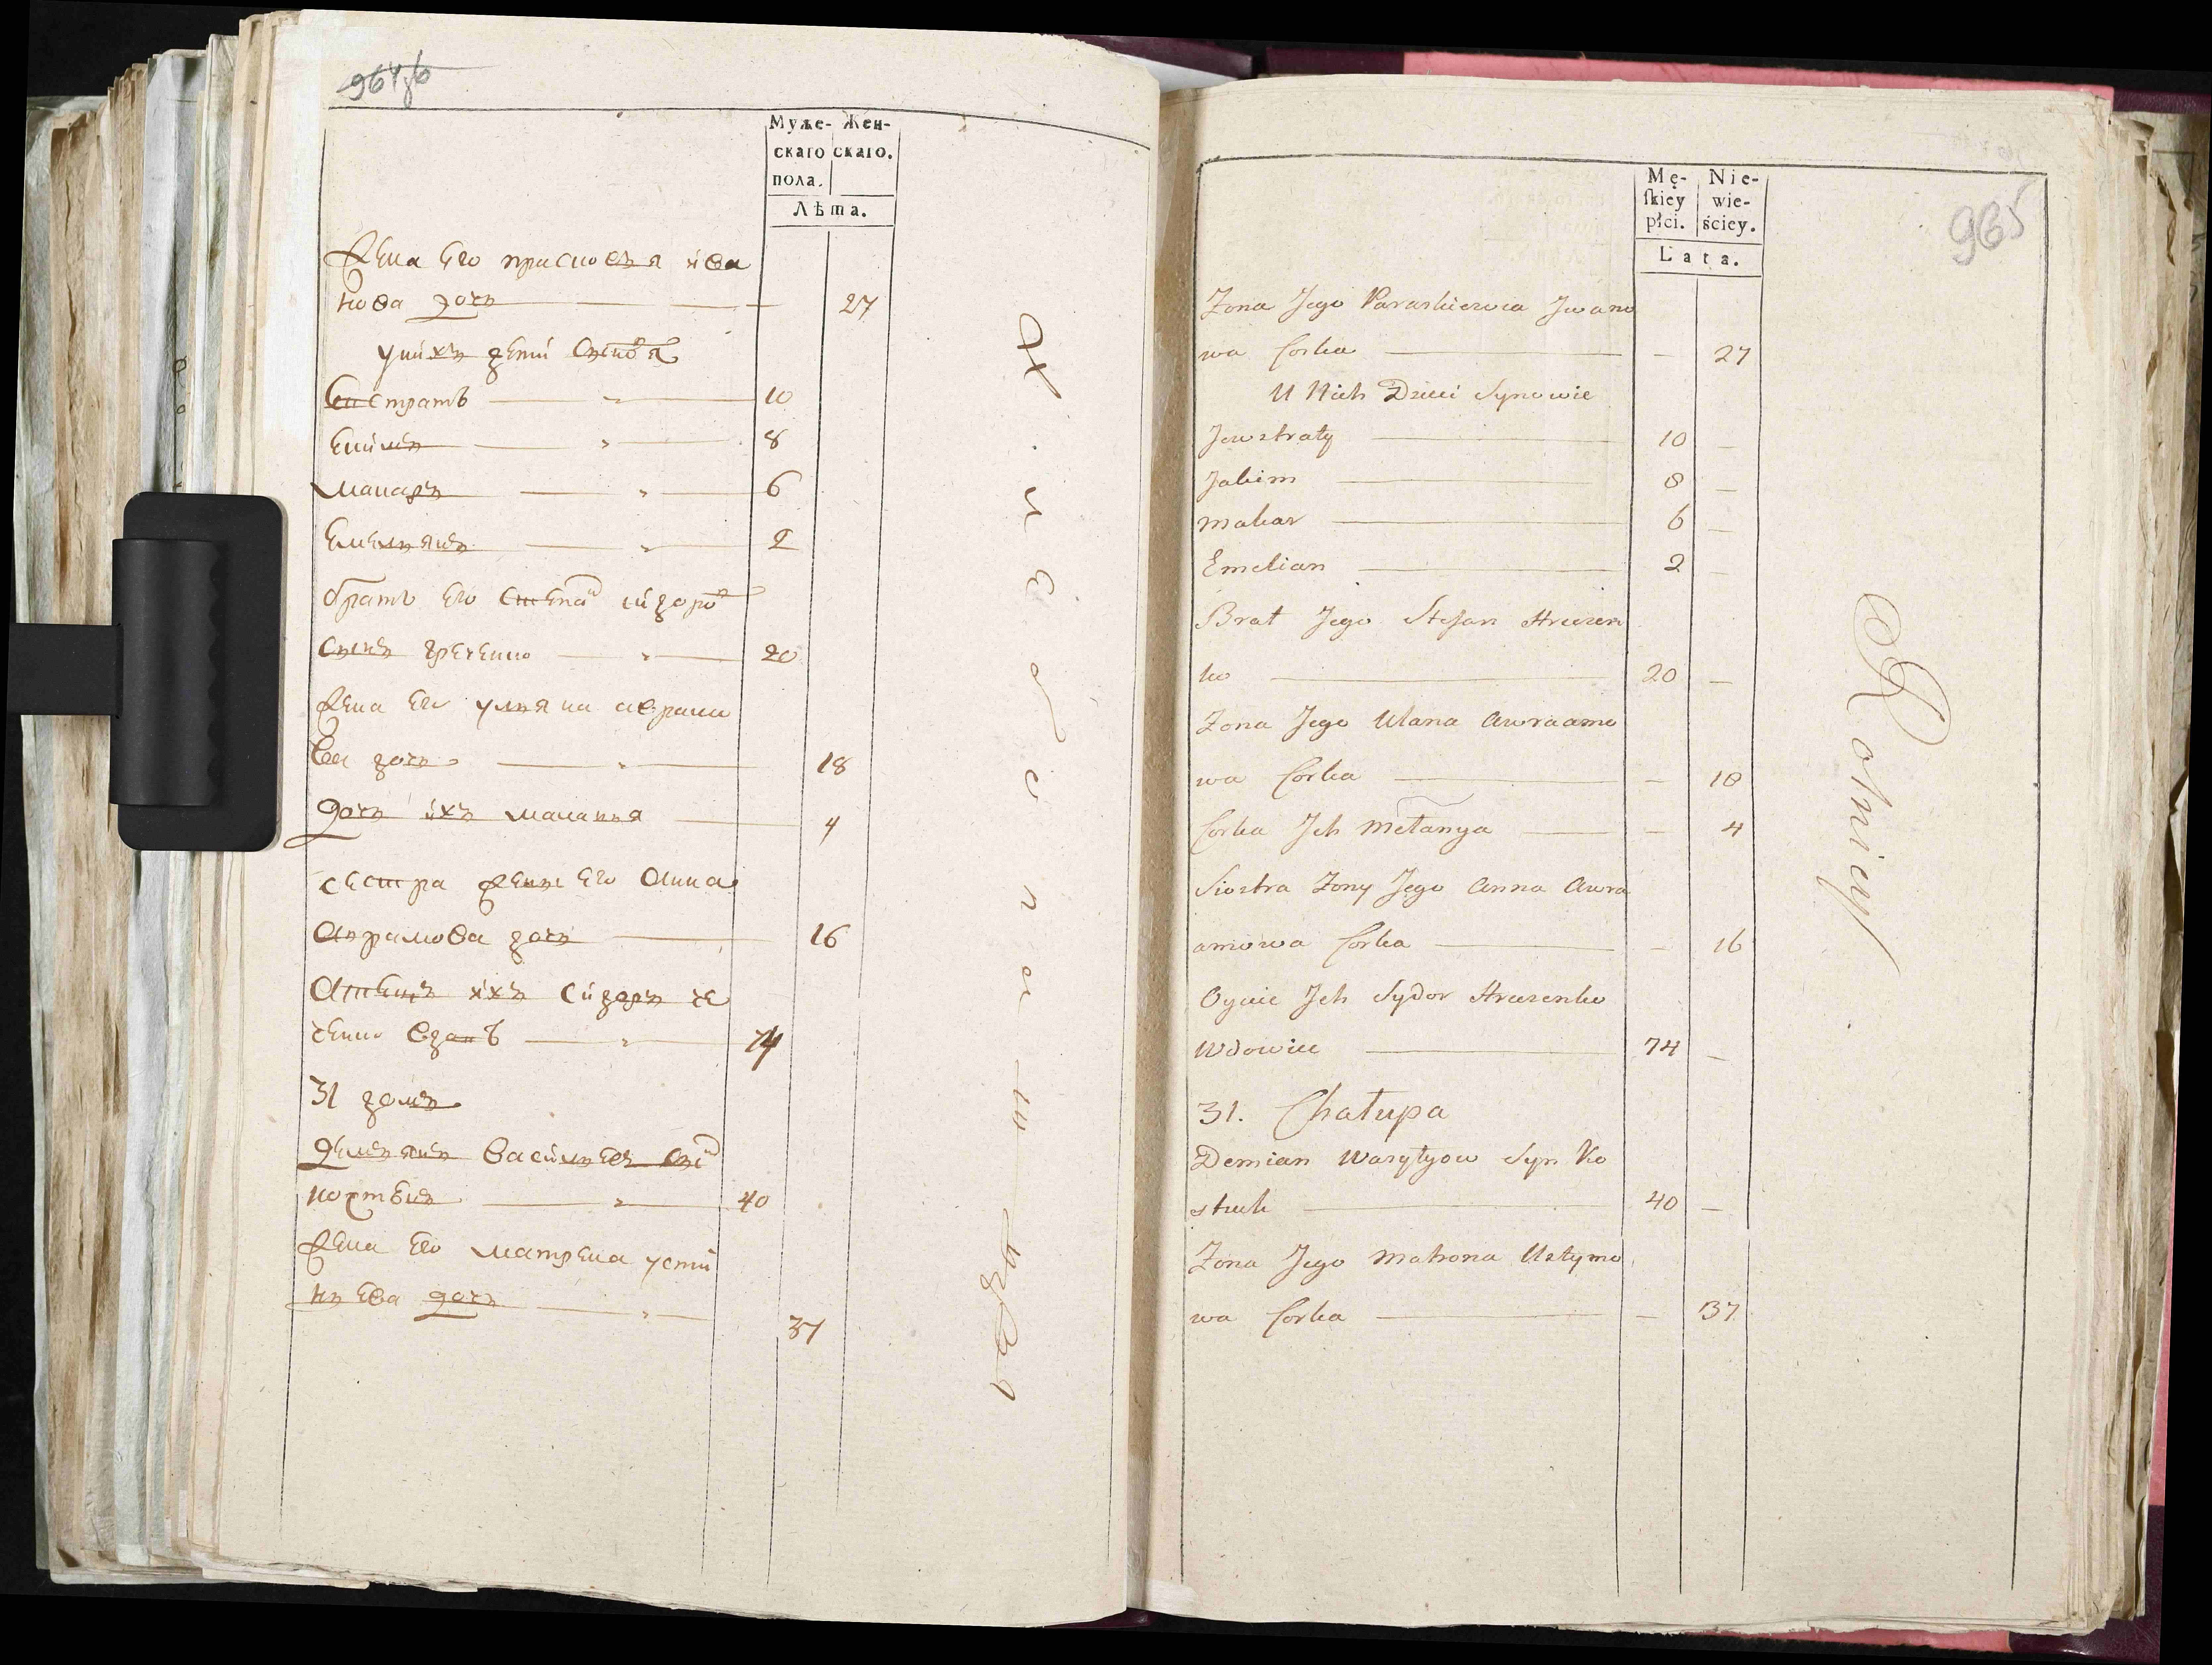 964об
Муже- Жен-
скаго скаго.
пола.
Лѣта.
жена Его прасковья ива
нова дочь 27
у нихъ дети сыновя
Евстратъ 10
Екимъ 8
макаръ 6
Емельянъ 2
братъ Его степан сидоров
сынъ 20
жена Его ульяна аврамо
ва дочь 18
дочь ихъ маланья 4
сестра жены Его анна
аврамова дочь 16
Атецъ ихъ сидоръ
вдовъ 74
31 домъ
демьянъ васильевъ сын
костюкъ 40
жена Его матрена усти
нъева дочь 37
965
Mę- Nie-
ſkiey wie-
płci. ściey.
Lata.
Zona Jego Paraskiewia Jwano
wa Corka — 27
U Nich Dzieci Synowie
Jewstraty 10 —
Jakim 8 —
Makar 6 —
Emelian 2
Brat Jego Stefan Hreczen
ko 20 —
Zona Jego Ulana Awraamo
wa Corka — 18
Corka Jch Mełanya — 4
Siostra Zony Jego Anna Awra
amowa Corka — 16
Oyciec Jch Sydor Hreczenko
Wdowiec 74 —
31. Chałupa
Demian Wasylyow Syn Ko
stiuk 40 —
Zona Jego Matrona Ustymo
wa Corka — 37
Rolnicy